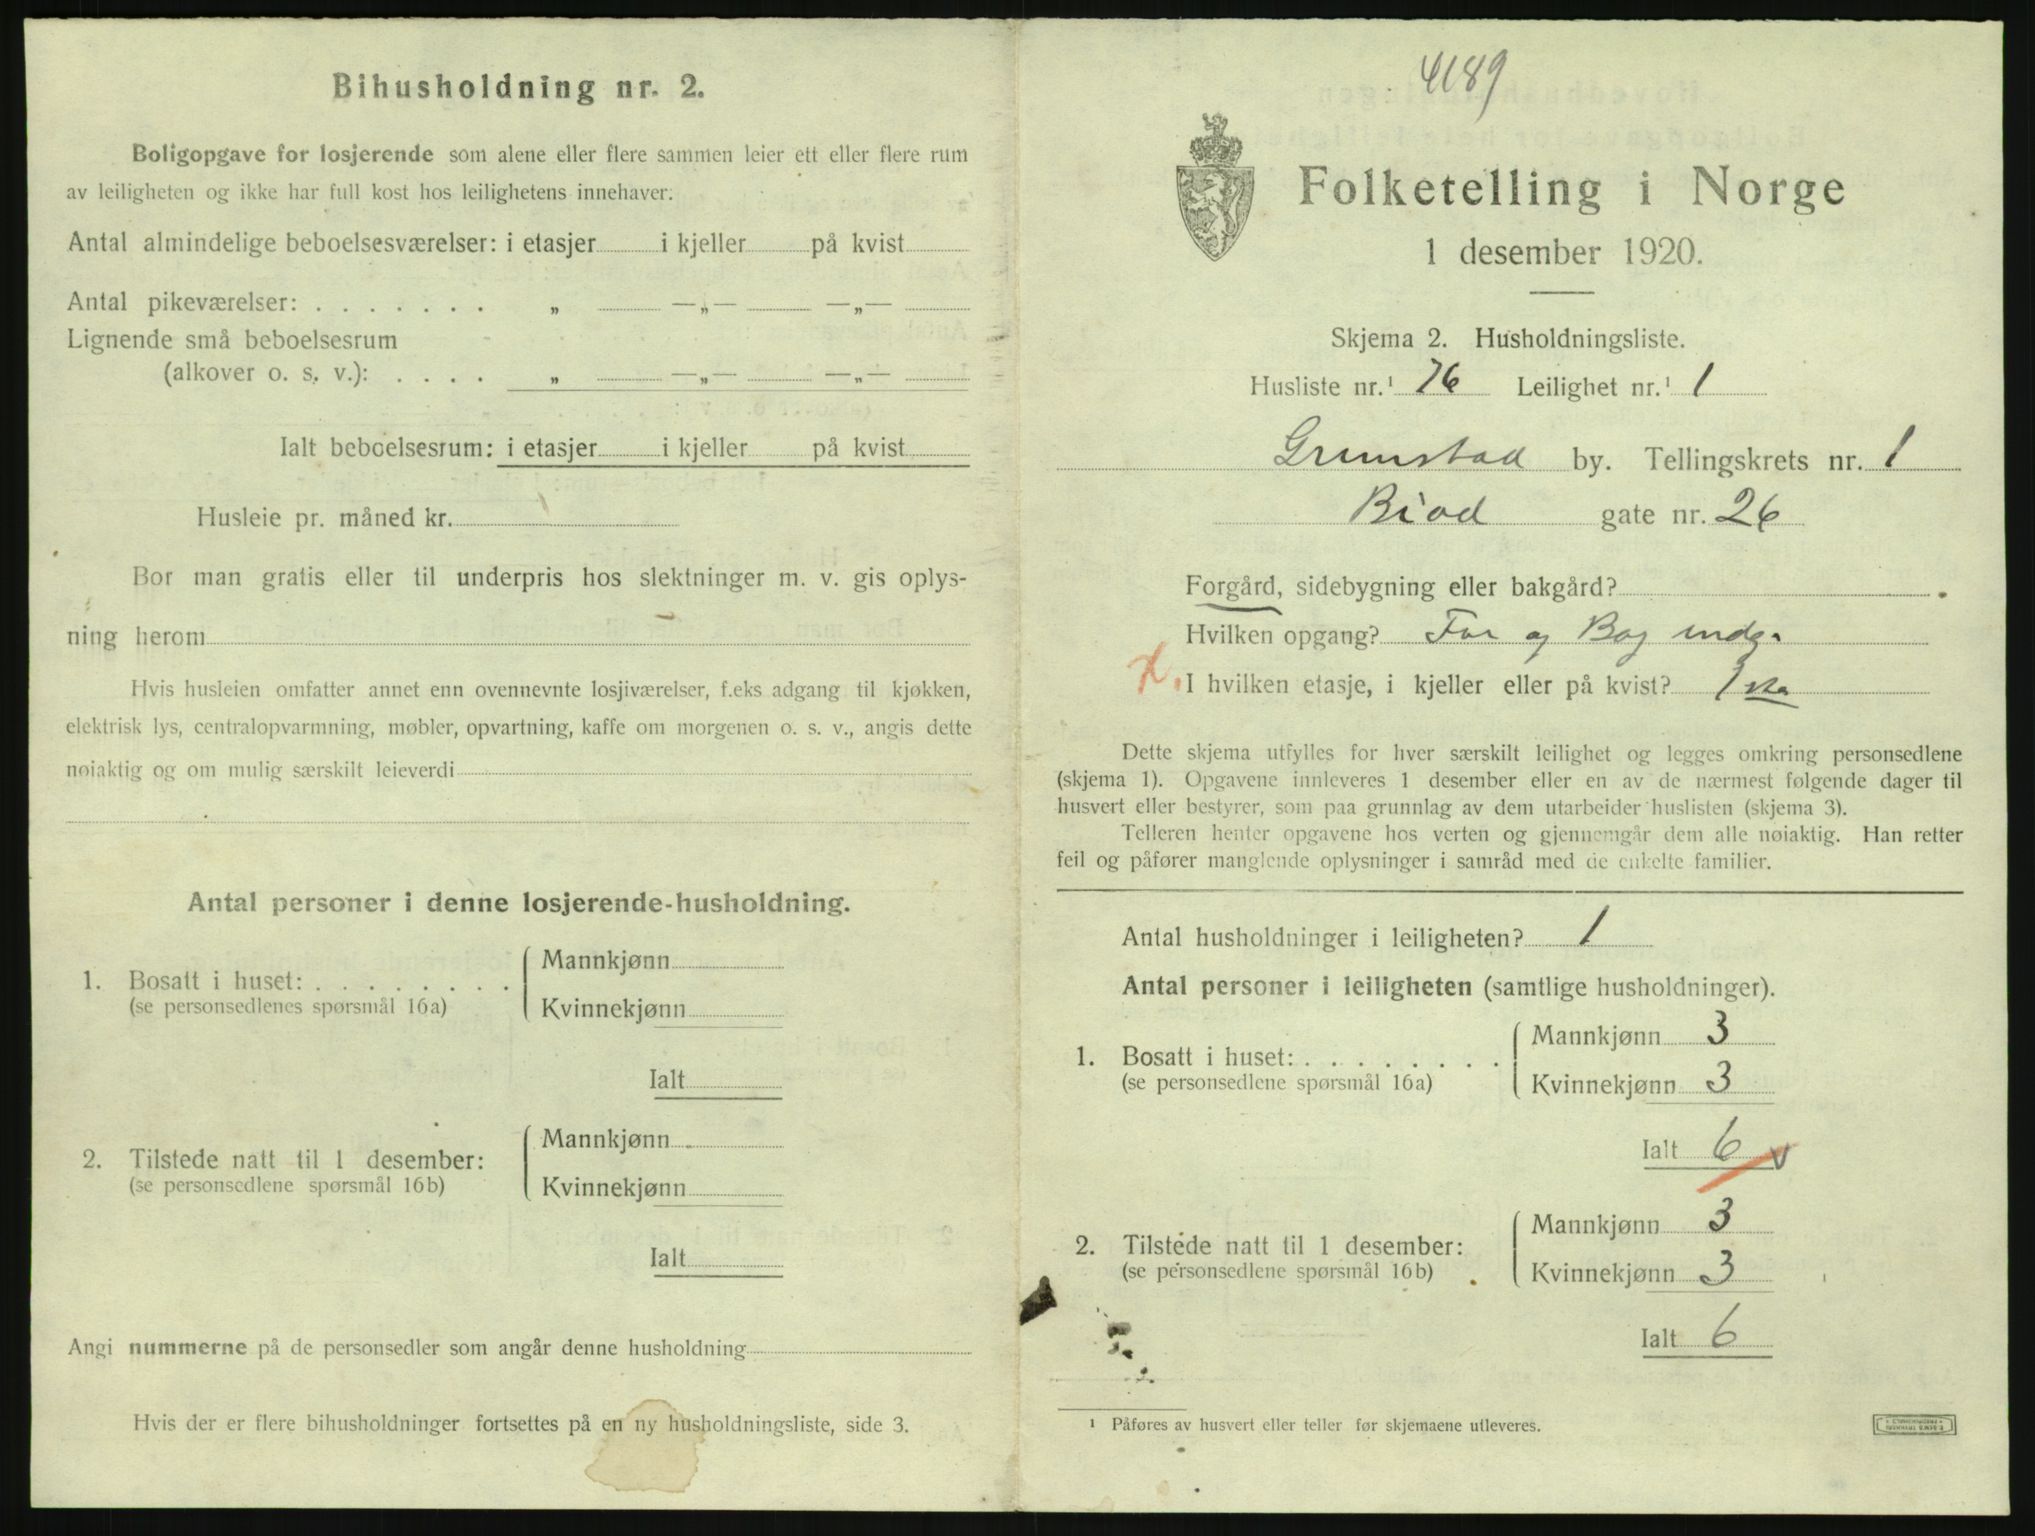 Bihusholdning nr. 2.
Boligopgave for losjerende som alene eller flere sammen leier ett eller flere rum
av leiligheten og ikke har full kost hos leilighetens innehaver:
Antal almindelige beboelsesværelser: i etasjer i kjeller på kvist
Antal pikeværelser: . . . . . . . „ —„— —„—
Lignende små beboelsesrum
(alkover o. s. v.): . . . . „ —„— —„—
Ialt beboelsesrum: i etasjer i kjeller på kvist
Husleie pr. måned kr.
Bor man gratis eller til underpris hos slektninger m. v. gis oplys-
ning herom
Hvis husleien omfatter annet enn ovennevnte losjiværelser, f.eks adgang til kjøkken,
elektrisk lys, centralopvarmning, møbler, opvartning, kaffe om morgenen o. s. v., angis dette
nøiaktig og om mulig særskilt leieverdi
Antal personer i denne losjerende-husholdning.
1. Bosatt i huset: . . . . . . . . Mannkjønn
(se personsedlenes spørsmål 16a) Kvinnekjønn
Ialt
2. Tilstede natt til 1 desember: Mannkjønn
(se personsedlene spørsmål 16b) Kvinnekjønn
Ialt
Angi nummerne på de personsedler som angår denne husholdning
Hvis der er flere bihusholdninger fortsettes på en ny husholdningsliste, side 3.
4189
Folketelling i Norge
1 desember 1920.
Skjema 2. Husholdningsliste.
Husliste nr.¹ 76 Leilighet nr.¹ 1
Grimstad by. Tellingskrets nr. 1
Biod gate nr. 26
Forgård, sidebygning eller bakgård?
Hvilken opgang? For og Bag indg.
I hvilken etasje, i kjeller eller på kvist? 1ste
Dette skjema utfylles for hver særskilt leilighet og legges omkring personsedlene
(skjema 1). Opgavene innleveres 1 desember eller en av de nærmest følgende dager til
husvert eller bestyrer, som paa grunnlag av dem utarbeider huslisten (skjema 3).
Telleren henter opgavene hos verten og gjennemgår dem alle nøiaktig. Han retter
feil og påfører manglende oplysninger i samråd med de enkelte familier.
Antal husholdninger i leiligheten? 1
Antal personer i leiligheten (samtlige husholdninger).
1. Bosatt i huset: . . . . . . . . Mannkjønn 3
(se personsedlene spørsmål 16a) Kvinnekjønn 3
Ialt 6 v
2. Tilstede natt til 1 desember: Mannkjønn 3
(se personsedlene spørsmål 16b) Kvinnekjønn 3
Ialt 6
¹ Påføres av husvert eller teller før skjemaene utleveres.